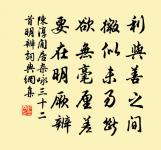 利與善之間
微似未易見
欲無毫厘差
要在明厥辨
陳淳閒居雜詠三十二
首明辨詞典網集